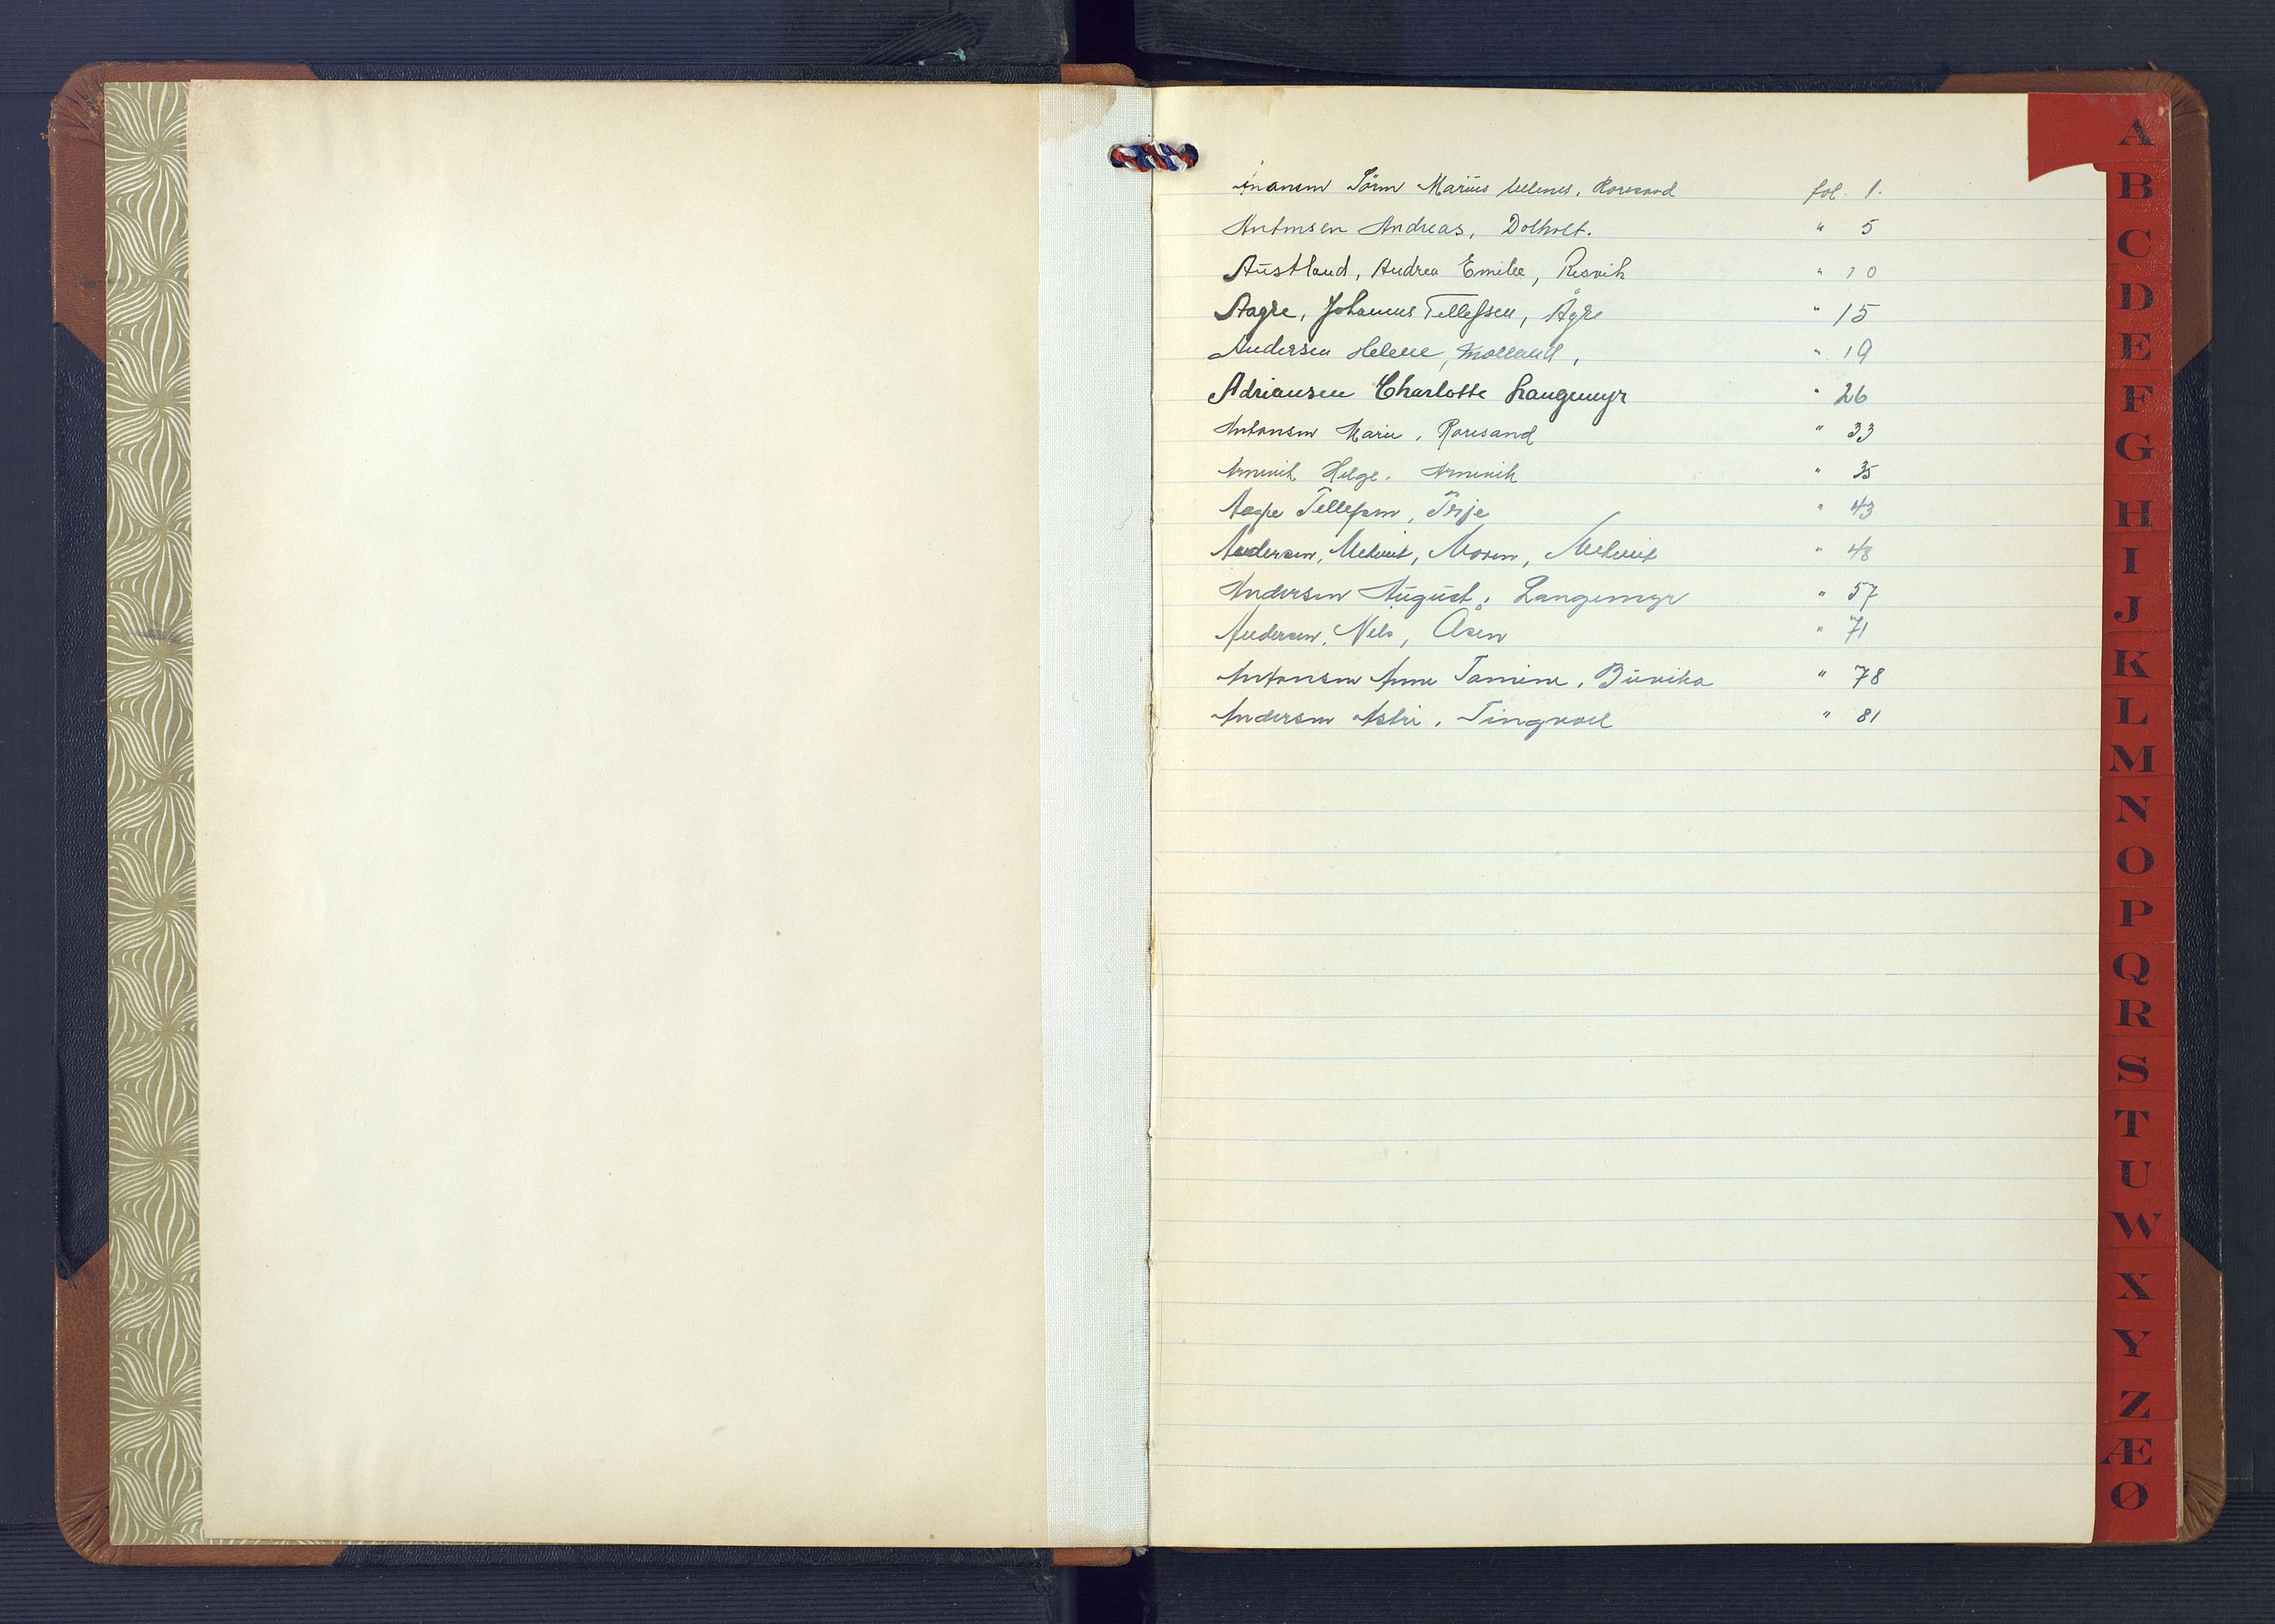 Marius Roresand fol. 1.
Antonsen Andreas, Dolholt. " 5
Austland, Andrea Emilie, Resvik " 10
Aagre, Johannes Tellefsen, Ågre " 15
Andersen Helene, Molland, " 19
Adriansen Charlotte Langemyr " 26
Antonsen Marie, Roresand " 33
Arnevik Helge. Arnevik " 35
Tellefsen, " 43
Andersen, Moren, " 48
Andersen August, Langemyr " 57
Andersen, Nels, Åsen " 71
Antonsen Anne Tomine, Buvika " 78
Andersen Astri, Tingvoll " 81
A
B
C
D
E
F
G
H
I
J
K
L
M
N
O
P
Q
R
S
T
U
W
X
Y
Z
Æ
Ø